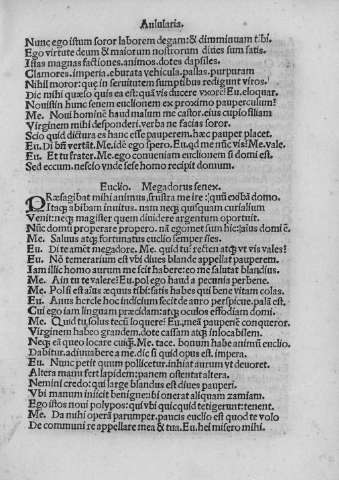 Aulularia.
Nunc ego istum soror laborem degam: & diminuam tibi.
Ego virtute deum & maiorum nostrorum diues sum satis.
Istas magnas factiones. animos. dotes dapsiles.
Clamores. imperia. eburata vehicula. pallas. purpuram
Nihil moror: que in seruitutem sumptibus redigunt viros.
Dic mihi quæso quis ea est: quã vis ducere vxorẽ? Eu. eloquar.
Nouistin hunc senem euclionem ex proximo pauperculum?
Me. Noui hominẽ haud malum me castor. eius cupio filiam
Virginem mihi desponderi. verba ne facias soror.
Scio quid dictura es hanc esse pauperem. hæc pauper placet.
Eu. Di bñ vertãt. Me. idẽ ego spero. Eu. qd me nũc vis? Me. vale.
Eu. Et tu frater. Me. ego conueniam euclionem si domi est.
Sed eccum. nescio vnde sese homo recipit domum.
Euclio. Megadorus senex.
PRæsagibat mihi animus, frustra me ire: quũ exibã domo.
Itaq; abibam inuitus. nam neq; quisquam curialium
Venit: neq; magister quem diuidere argentum oportuit.
Nũc domũ properare propero. nã egomet sum hic: aĩus domi ẽ.
Me. Saluus atq; fortunatus euclio semper sies.
Eu. Di te amẽt megadore. Me. quid tu? recten atq; vt vis vales?
Eu. Nõ temerarium est vbi diues blande appellat pauperem.
Iam illic homo aurum me scit habere: eo me salutat blandius.
Me. Ain tu te valere? Eu. pol ego haud a pecunia perbene.
Me. Pol si est aĩus æquus tibi: satis habes qui bene vitam colas.
Eu. Anus hercle hoc indicium fecit de auro perspicue. palã est.
Cui ego iam linguam præcidam: atq; oculos effodiam domi.
Me. Quid tu solus tecũ loquere? Eu. meã pauperiẽ conqueror.
Virginem habeo grandem. dote cassam atq; inlocabilem.
Neq; eã queo locare cuiq̃. Me. tace. bonum habe animũ euclio.
Dabitur. adiuuabere a me. dic si quid opus est. impera.
Eu. Nunc petit quum pollicetur. inhiat aurum vt deuoret.
Altera manu fert lapidem: panem ostentat altera.
Nemini credo: qui large blandus est diues pauperi.
Vbi manum iniicit benigne: ibi onerat aliquam zamiam.
Ego istos noui polypos: qui vbi quicquid tetigerunt: tenent.
Me. Da mihi operã parumper. paucis euclio est quod te volo
De communi re appellare mea & tua. Eu. hei misero mihi.